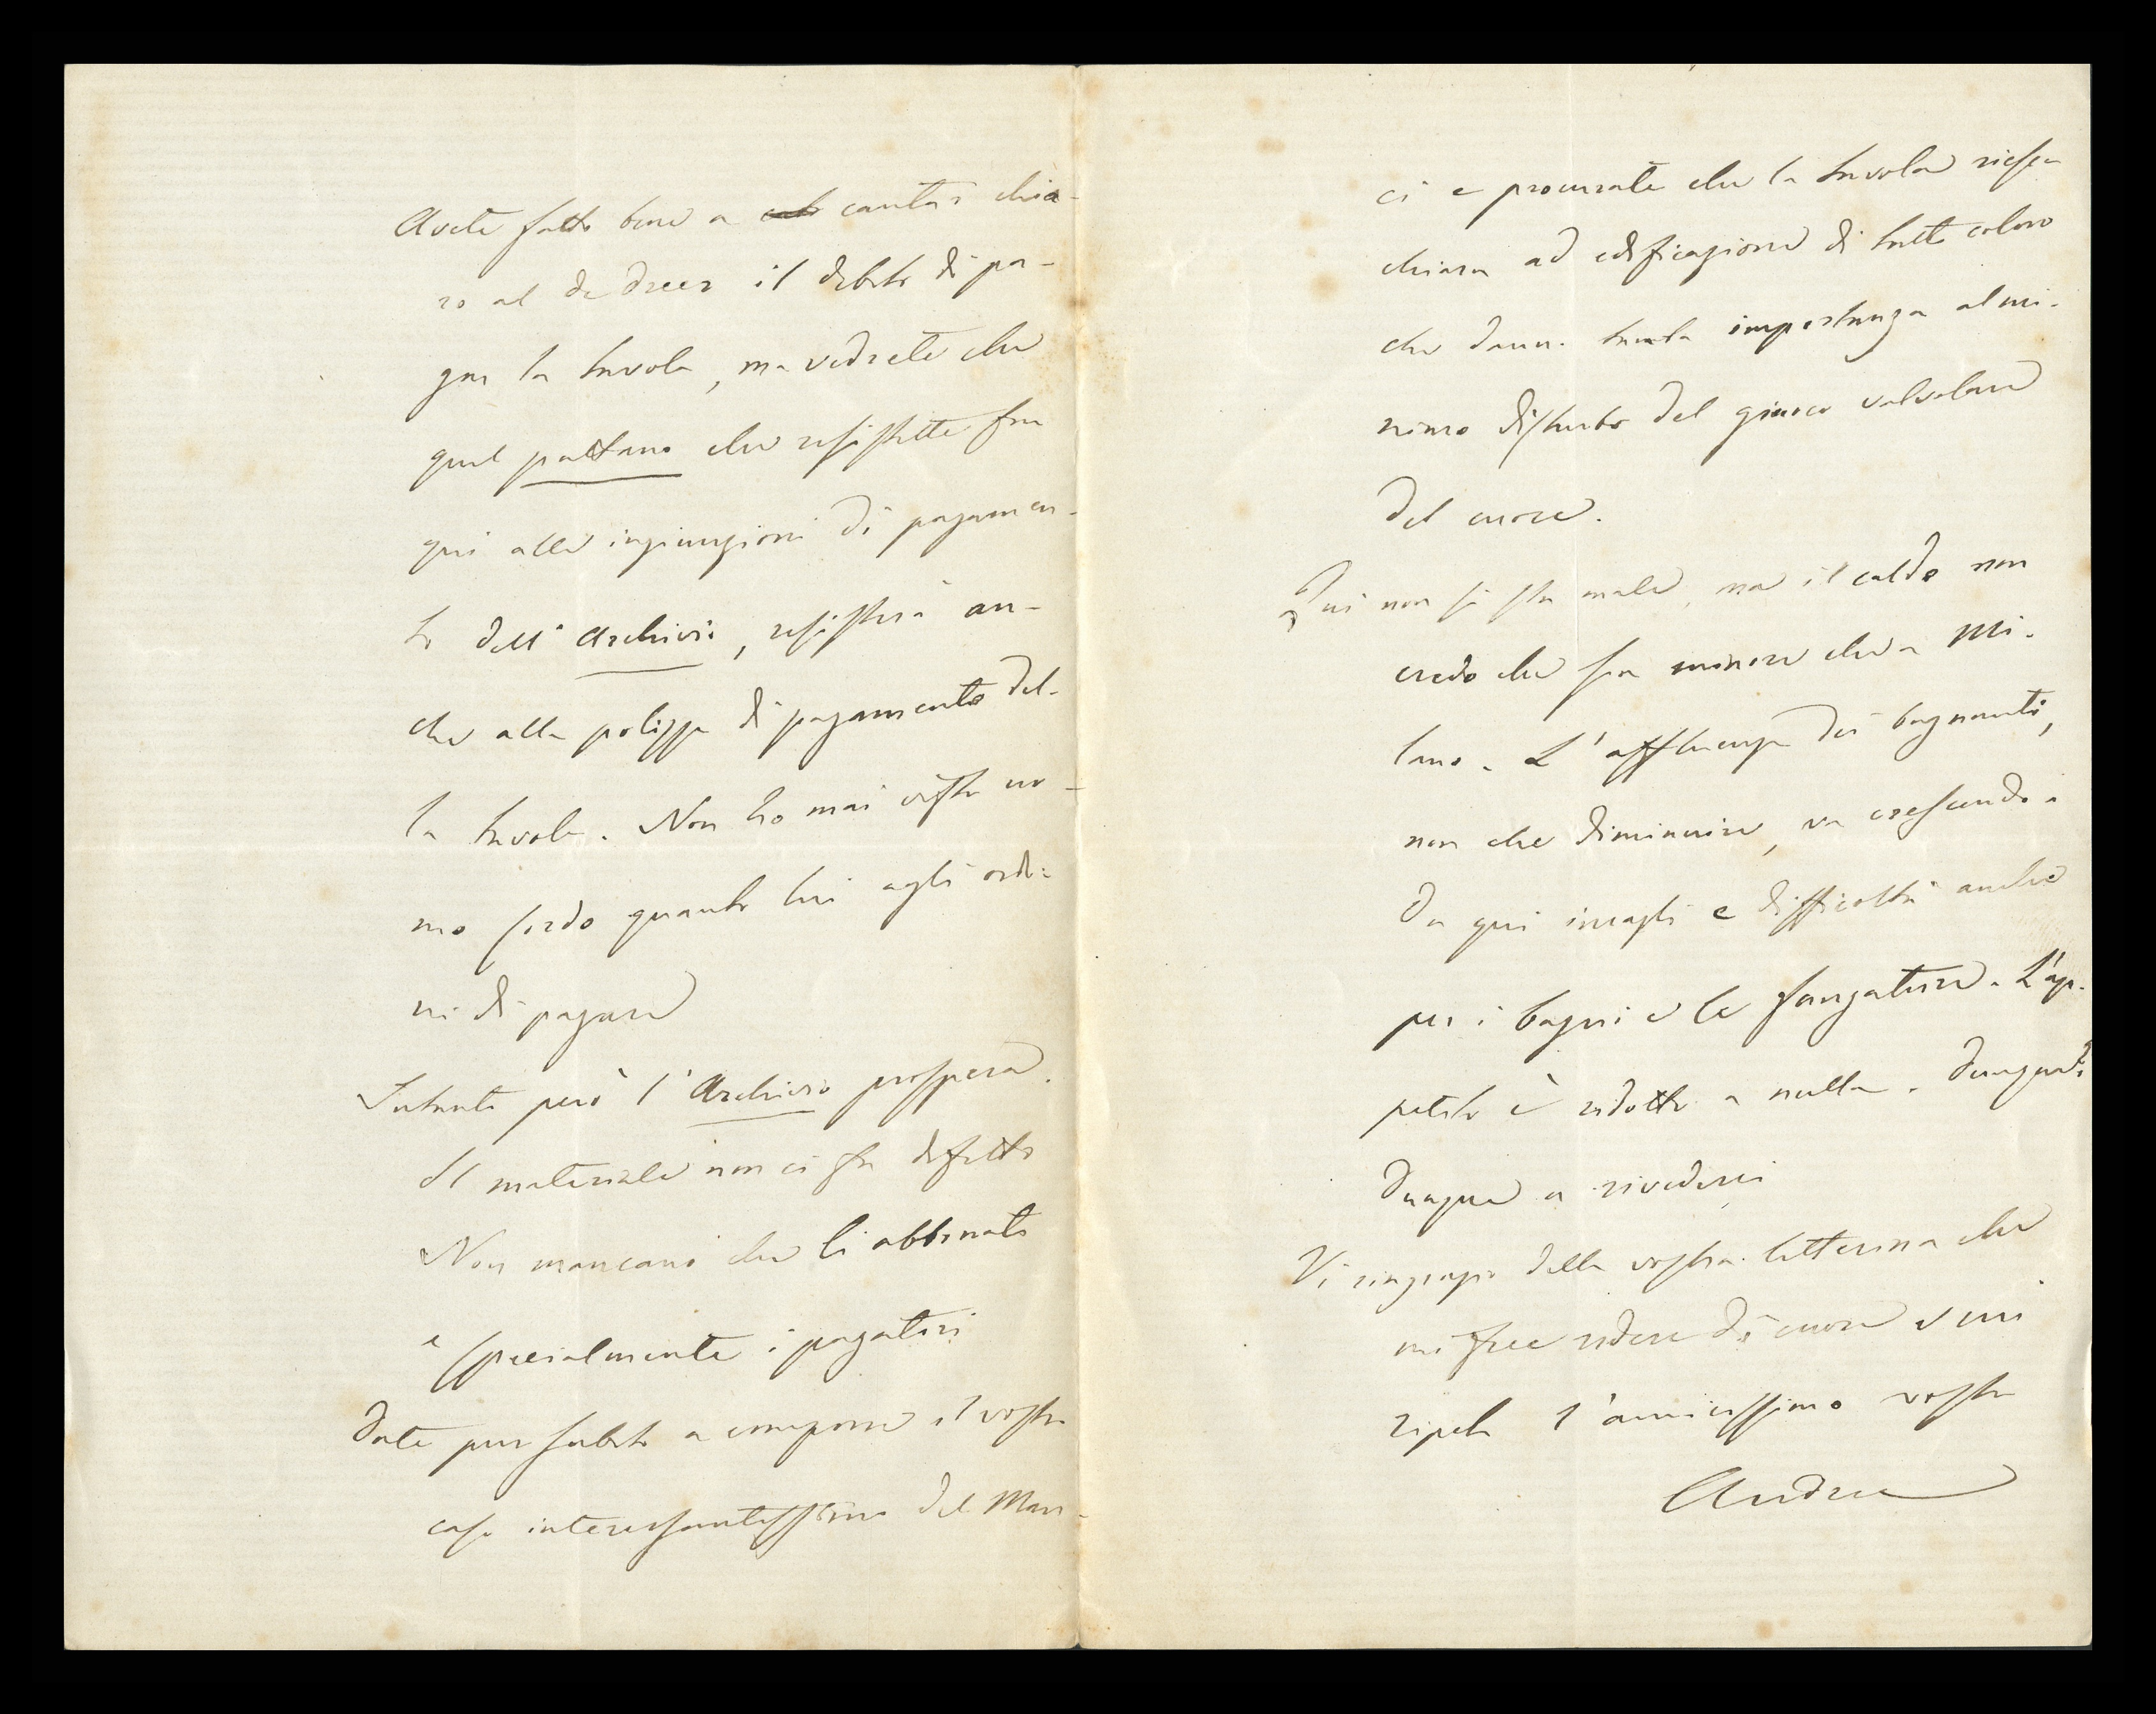 Avete fatto bene a cantar chia-
ro al De Dreer il debito di pa-
gar la tavola, ma vedrete che
quel pattano che resistette fra
qui alle ingiunzioni di pagamen-
to dell' Archivio, resisterà an-
che alla polizza di pagamento del-
la tavola. Non ho mai visto uo-
mo sordo quanto lui agli ordi-
ni di pagare
Intanto però l'Archivio prospera.
Il materiale non ci fa difetto
Non mancano che li abbonati
e specialmente i pagatori
Date pur subito a comporre il vostro
caso interessantissimo del Man-
ci e procurate che la tavola riesca
chiara ad edificazione di tutti coloro
che danno tanta importanza al mi-
nimo disturbo del giuoco valvolare
del cuore.
Qui non si sta male, ma il caldo non
credo che sia minore che a Mi-
lano. L'affluenza dei bagnanti,
non che diminuire, va crescendo.
Da qui incagli e difficoltà anche
per i bagni e le fangature. L'ap-
petito è ridotto a nulla.
Dunque a rivederci
Vi ringrazio della vostra letterina che
mi fece ridere di cuore e mi
ripeto l'amicissimo vostro
Andrea